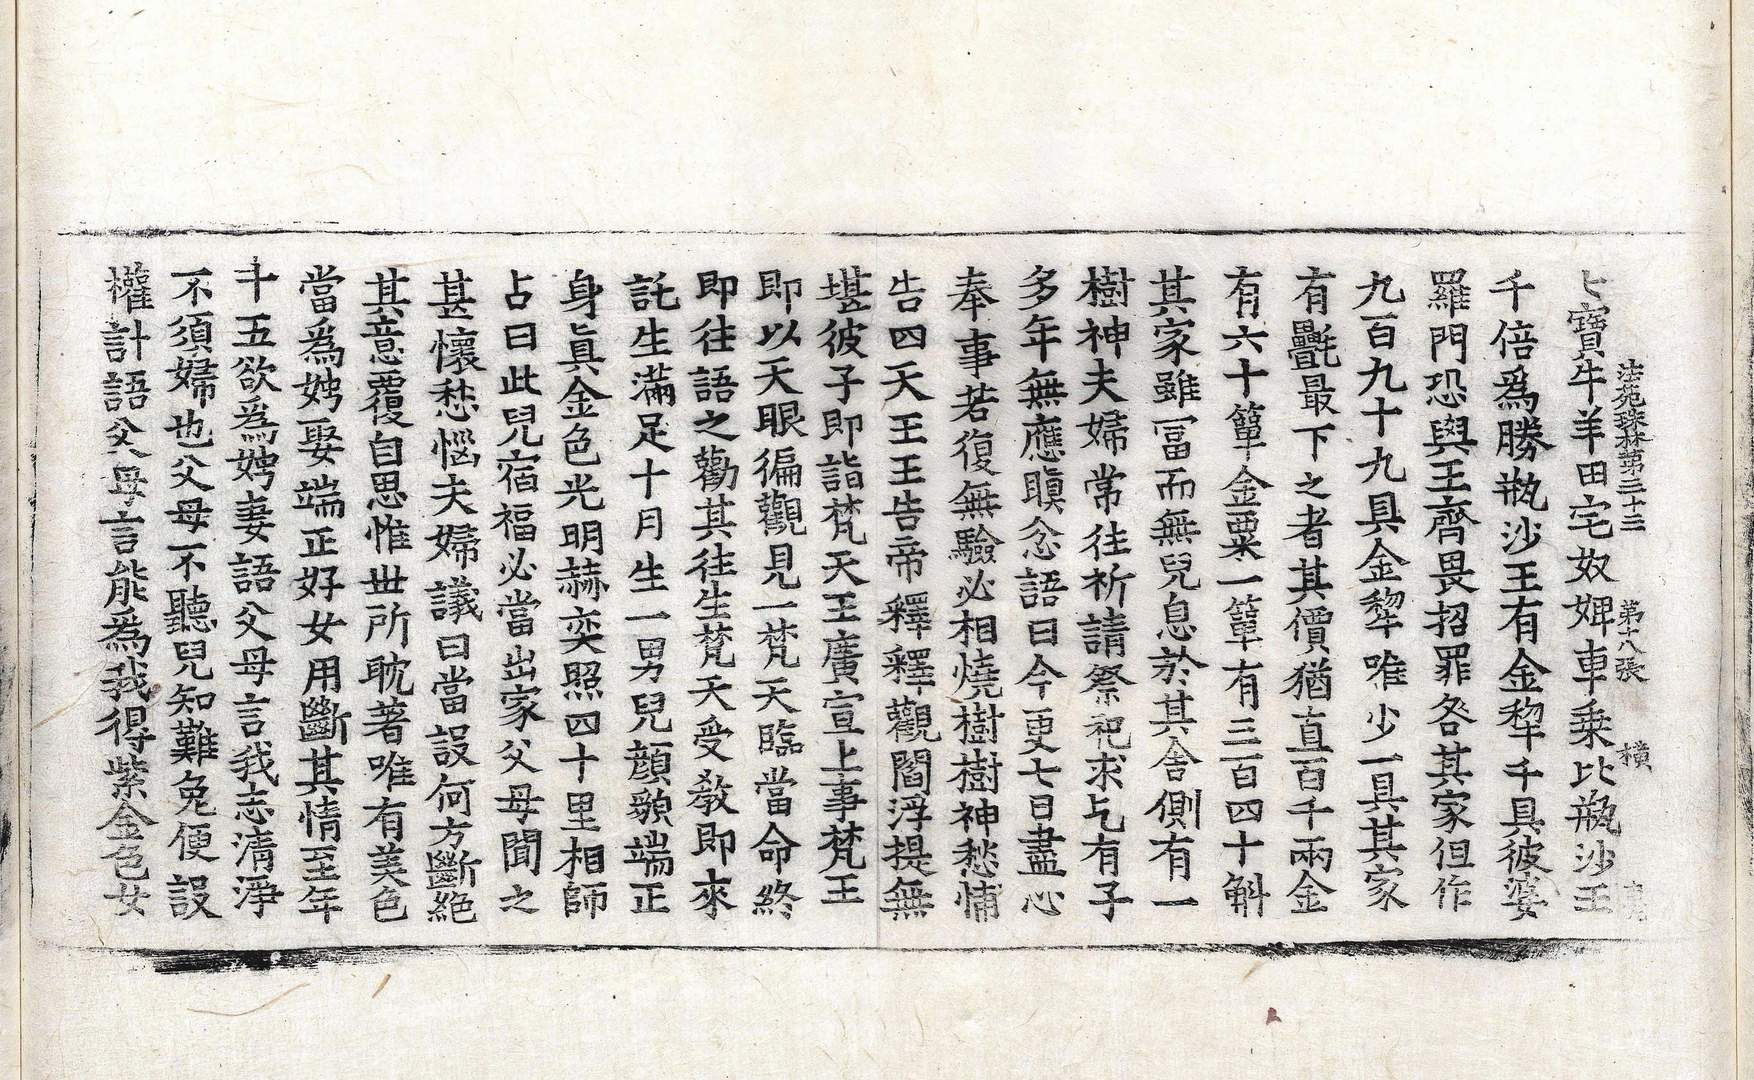 法苑珠林第三十三　第十八張　橫
七寶牛羊田宅奴婢車乗比瓶沙王
千倍爲勝瓶沙王有金犂千具彼婆
羅門恐與王齊畏招罪咎其家但作
九百九十九具金犂唯少一具其家
有㲲最下之者其價猶直百千兩金
有六十簞金粟一簞有三百四十斛
其家雖冨而無兒息於其舍側有一
樹神夫婦常往祈請祭祀求乞有子
多年無應瞋忿語曰今更七日盡心
奉事若復無驗必相燒樹樹神愁怖
告四天王王告帝釋釋觀閻浮提無
堪彼子即詣梵天王廣宣上事梵王
即以天眼徧觀見一梵天臨當命終
即往語之勸其往生梵天受教即來
託生滿足十月生一男兒顔貌端正
身眞金色光明赫奕照四十里相師
占曰此兒宿福必當出家父母聞之
甚懷愁惱夫婦議曰當設何方斷絶
其意覆自思惟丗所耽著唯有美色
當爲娉娶端正好女用斷其情至年
十五欲爲娉妻語父母言我志清淨
不須婦也父母不聽兒知難免便設
權計語父母言能爲我得紫金色女